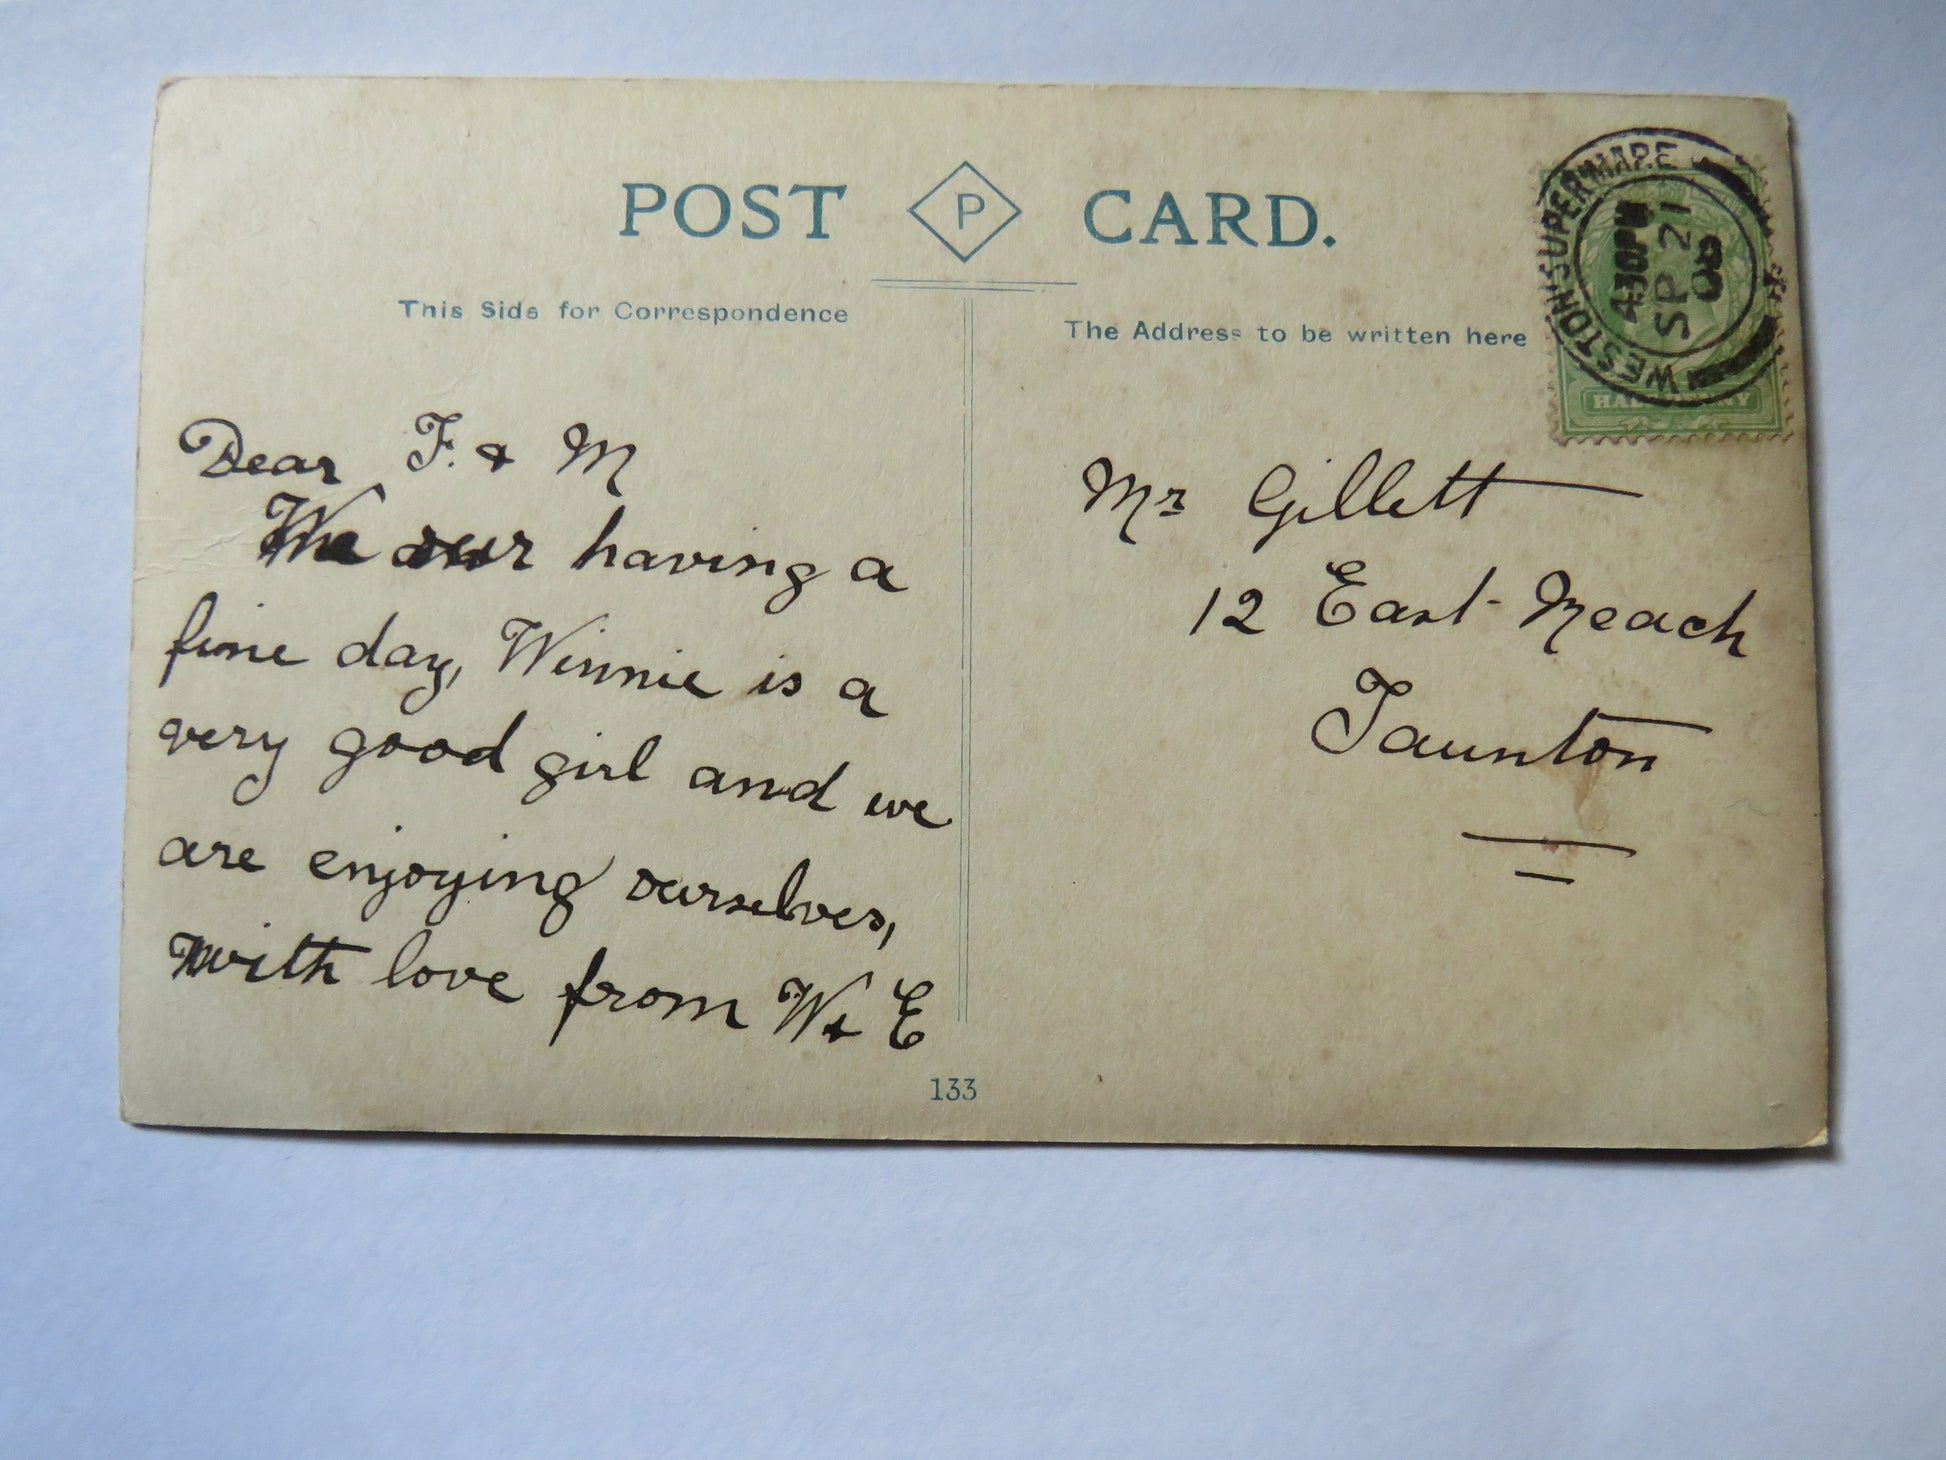 POST P CARD.
This Side for Correspondence
The Address to be written here
WESTON-SUPER-MARE
4.30PM
SP 21
08
HALFPENNY
Dear F. & M
We are having a
fine day, Winnie is a
very good girl and we
are enjoying ourselves,
with love from W & E
Mr Gillett
12 East Reach
Taunton
133